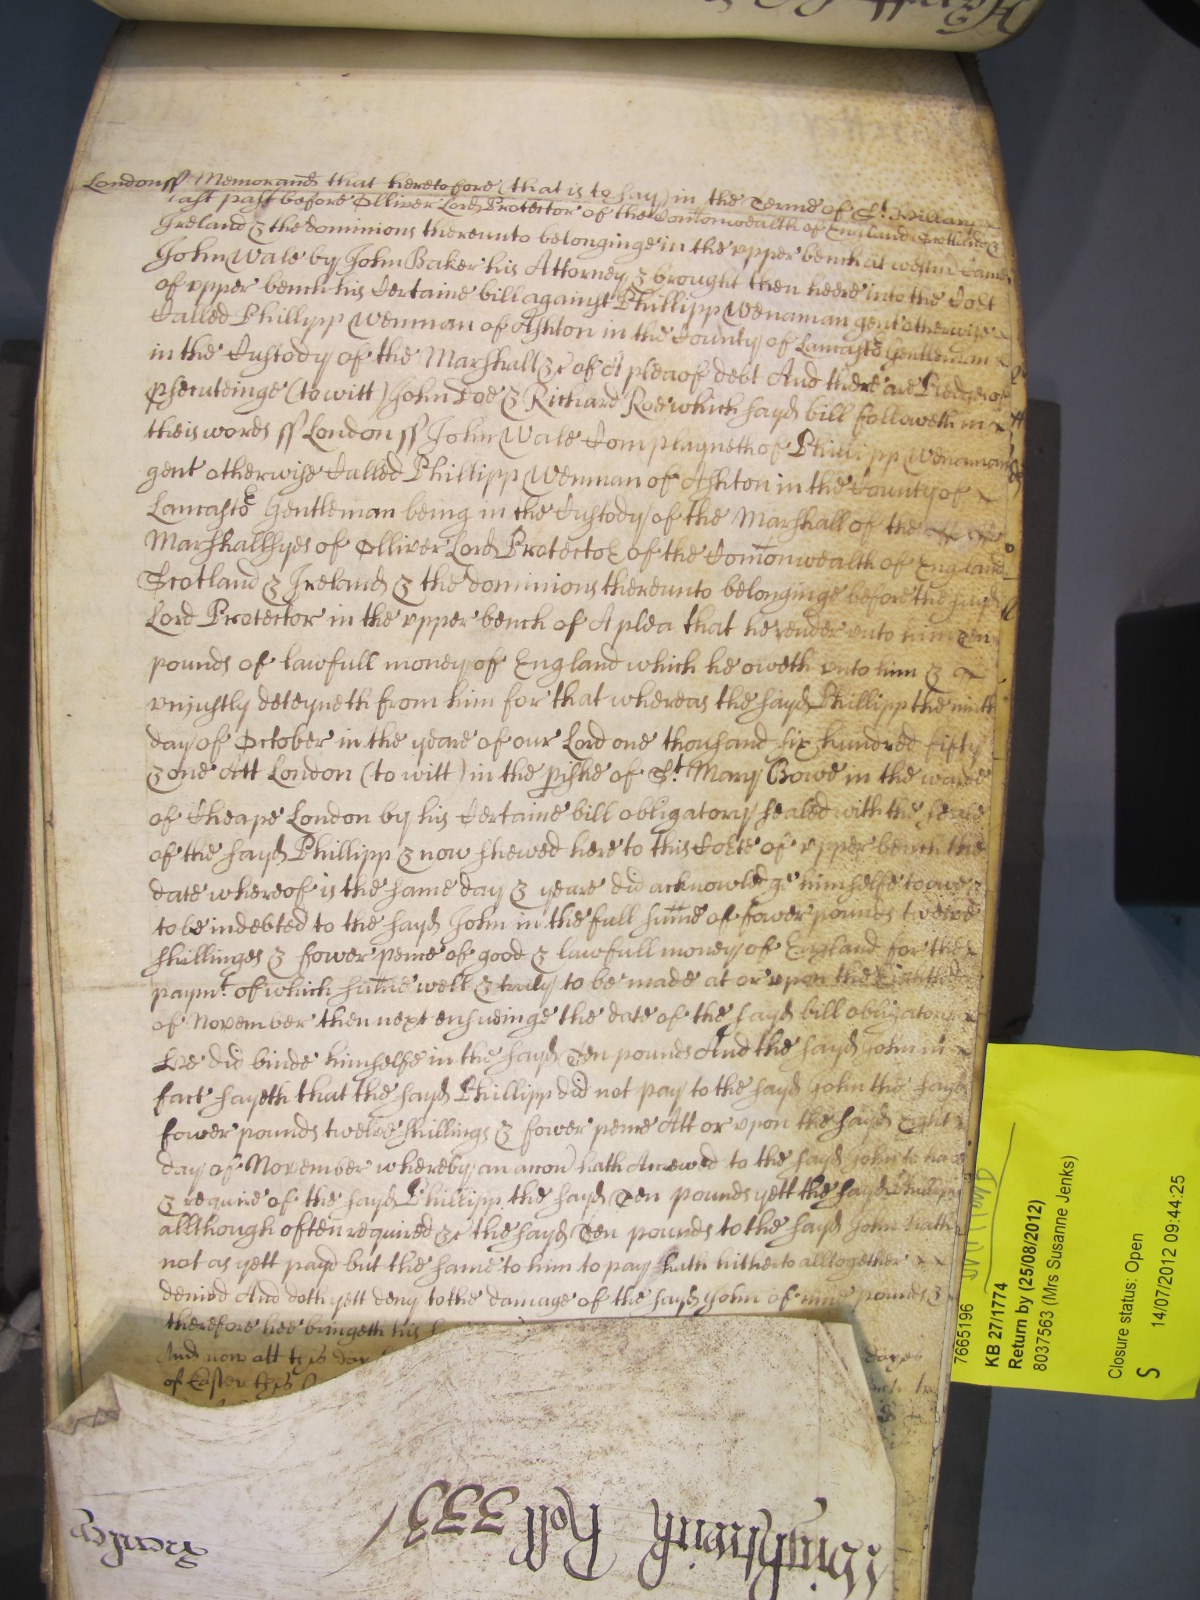 London ss Memorand that heretofore (that is to say) in the Terme of St. Hillary
last past before Olliver Lord Protector of the Comonwealth of England Scotland &
Ireland & the dominions thereunto belonginge in the upper bench at westm Came
John Wale by John Baker his Attorney & brought then heere into the Cort
of upper bench his Certaine bill against Phillipp Wenaman gent otherwise
Called Phillipp Wenman of Ashton in the County of Lancastr Gentleman
in the Custody of the Marshall &c of A plea of debt And there are Pledges of
psecuteinge (to witt) John Doe & Richard Roe which sayd bill followeth in
theis words ss London ss John Wale Complayneth of Phillipp Wenaman
gent otherwise Called Phillipp Wenman of Ashton in the County of
Lancastr Gentleman being in the Custody of the Marshall of the
Marshalshyes of Olliver Lord Protector of the Comonwealth of England
Scotland & Ireland & the dominions thereunto belonginge before the sayd
Lord Protector in the upper bench of A plea that he render unto him Ten
pounds of lawfull money of England which he oweth unto him &
uniustly deteyneth from him for that whereas the sayd Phillipp the
day of October in the yeare of our Lord one thousand six hundred fifty
& one Att London (to witt) in the pishe of St. Mary Bowe in the warde
of Cheape London by his Certaine bill obligatory sealed with the seale
of the sayd Phillipp & now shewed here to this Corte of upper bench the
date whereof is the same day & yeare did acknowledge himselfe to owe &
to be indebted to the sayd John in the full sume of fower pounds twelve
shillinges & fower pence of good & lawfull money of England for the
paymt. of which sume well & truly to be made at or upon the Eight
of November then next ensueinge the date of the sayd bill obligatory
hee did binde himselfe in the sayd Ten pounds And the sayd John in
fact sayeth that the sayd Phillipp did not pay to the sayd John the sayd
fower pounds twelve shillings & fower pence Att or upon the sayd Eight
day of November whereby an accon hath Accrewed to the sayd John to have
& require of the sayd Phillipp the sayd Ten pounds yett the sayd Phillipp
allthough often required &c the sayd Ten pounds to the sayd John hath
not as yett payd but the same to him to pay hath hitherto alltogether
denied And doth yett deny to the damage of the sayd John of nine pounds &
therefore hee bringeth his
And now att this day
dayes
of Easter this
Roll 333
7665196
KB 27/1774
Return by (25/08/2012)
8037563 (Mrs Susanne Jenks)
Closure status: Open
S 14/07/2012 09:44:25